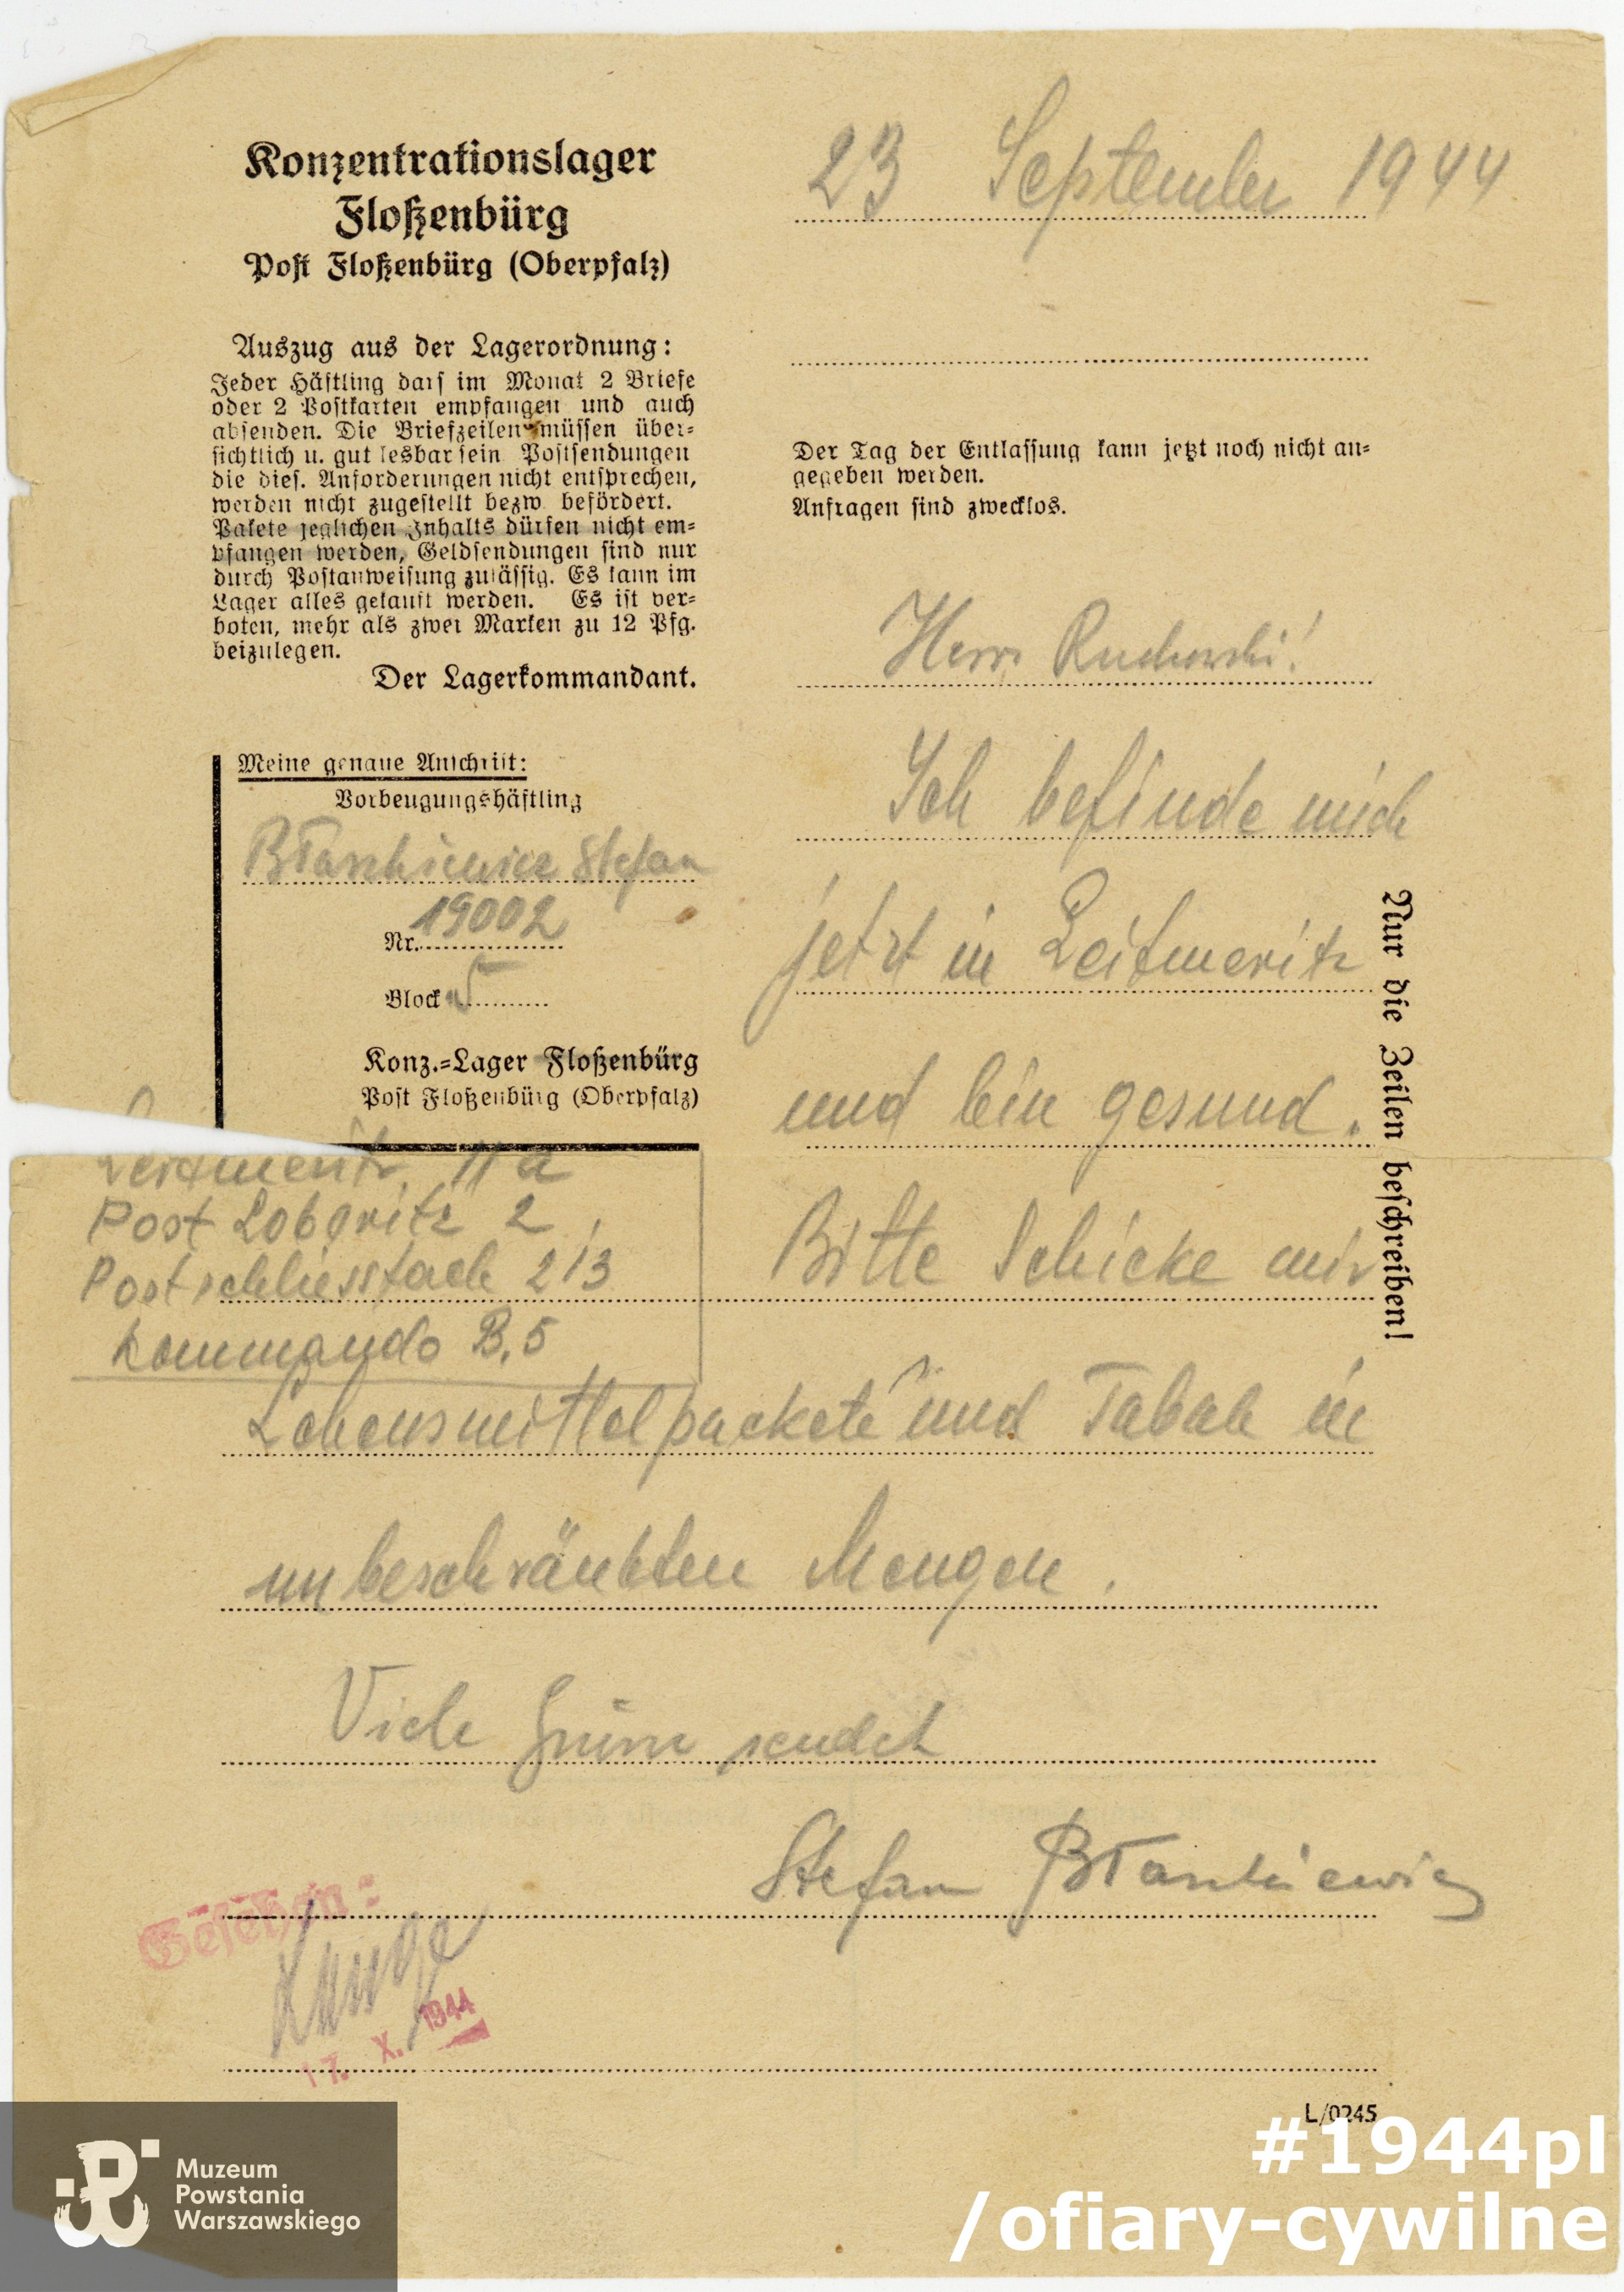 Konzentrationslager
Floßenbürg
Post Floßenbürg (Oberpfalz)
Auszug aus der Lagerordnung:
Jeder Häftling darf im Monat 2 Briefe
oder 2 Postkarten empfangen und auch
absenden. Die Briefzeilen müssen über-
sichtlich u. gut lesbar sein Postsendungen
die dies. Anforderungen nicht entsprechen,
werden nicht zugestellt bezw. befördert.
Pakete jeglichen Inhalts dürfen nicht em-
pfangen werden, Geldsendungen sind nur
durch Postanweisung zulässig. Es kann im
Lager alles gekauft werden. Es ist ver-
boten, mehr als zwei Marken zu 12 Pfg.
beizulegen.
Der Lagerkommandant.
Meine genaue Anschrift:
Vorbeugungshäftling
Błaszkiewicz Stefan
Nr. 19002
Block 5
Konz.-Lager Floßenbürg
Post Floßenbürg (Oberpfalz)
Leitmeritz 11a
Post Loboritz 2
Postschliessfach 2/3
Kommando B.5
23 September 1944
Der Tag der Entlassung kann jetzt noch nicht an-
gegeben werden.
Anfragen sind zwecklos.
Herr !
Ich befinde mich
jetzt in Leitmeritz
und bin gesund.
Bitte Schicke mir
Lebensmittelpackete und Tabak in
unbeschränkten Mengen.
Viele Grüsse sendet
Stefan Błaszkiewicz
Nur die Zeilen beschreiben!
Gesehen:
17. X. 1944
L/0245
Muzeum
Powstania
Warszawskiego
#1944pl
/ofiary-cywilne